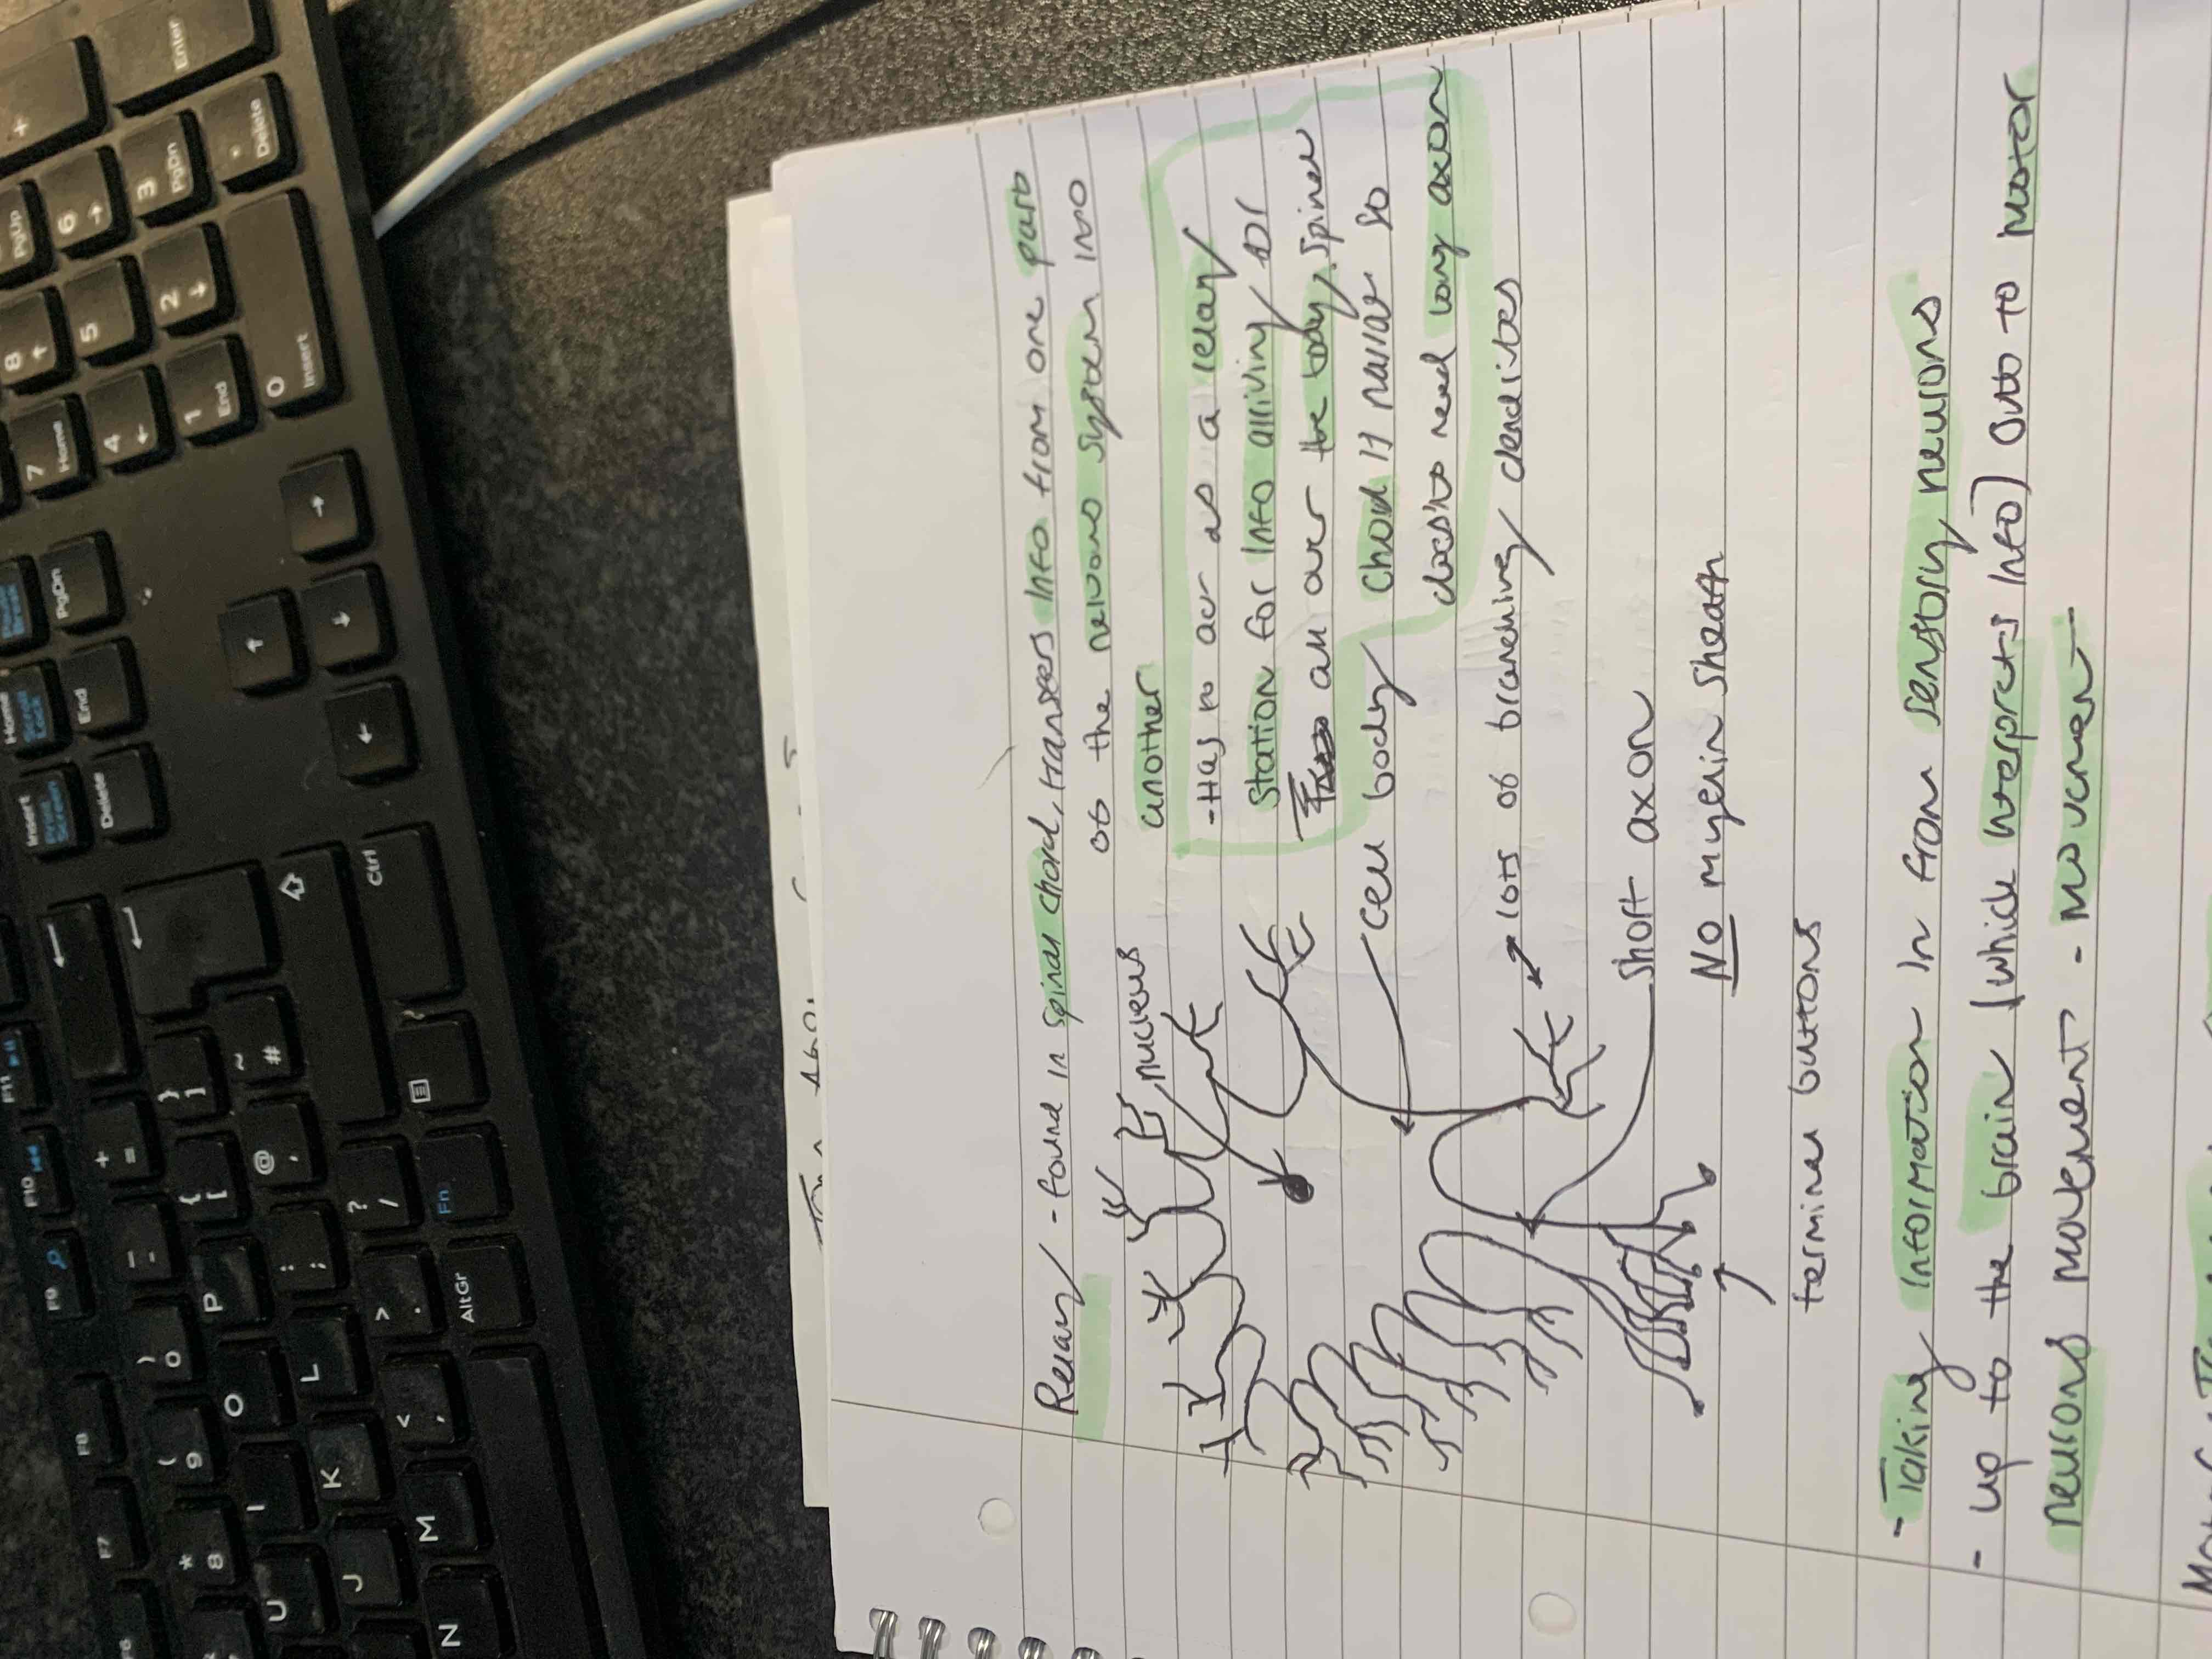 Relay - found in spinal chord, transfers info from one part
of the nervous system into
another
nucleus
- Has to act as a relay
station for info arriving for
all over the body. Spinal
chord is narrow so
doesn't need long axon
cell body
lots of branching dendrites
short axon
No myelin sheath
terminal buttons
- Taking information in from sensory neurons
- up to the brain (which interprets info) out to motor
neurons movement - movement
Enter
+
6
3
PgDn
.
Delete
PgUp
8
5
2
0
Insert
7
Home
4
1
End
PgDn
Home
End
Insert
Delete
Ctrl
}
]
~
#
+
=
{
[
@
'
?
/
Fn
F10
F9
F8
F7
_
-
P
:
;
>
.
AltGr
)
0
O
L
<
,
(
9
I
K
M
*
8
U
J
N